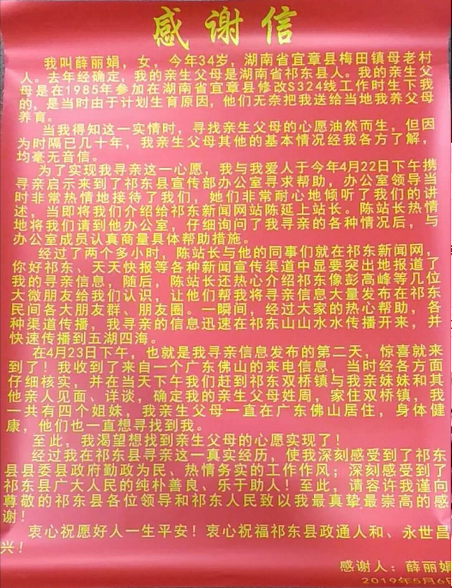 感谢信
我叫薛丽娟，女，今年34岁，湖南省宜章县梅田镇母老村
人。去年经确定，我的亲生父母是湖南省祁东县人。我的亲生父
母是在1985年参加在湖南省宜章县修改S324线工作时生下我
的，是当时由于计划生育原因，他们无奈把我送给当地我养父母
养育。
当我得知这一实情时，寻找亲生父母的心愿油然而生，但因
为时隔已几十年，我亲生父母其他的基本情况经我各方了解，
均毫无音信。
为了实现我寻亲这一心愿，我与我爱人于今年4月22日下午携
寻亲启示来到了祁东县宣传部办公室寻求帮助，办公室领导当
时非常热情地接待了我们，她们非常耐心地倾听了我们的讲
述，当即将我们介绍给祁东新闻网站陈延上站长。陈站长热情
地将我们请到他办公室，仔细询问了我寻亲的各种情况后，与
办公室成员认真商量具体帮助措施。
经过了两个多小时，陈站长与他的同事们就在祁东新闻网，
你好祁东、天天快报等各种新闻宣传渠道中显要突出地报道了
我的寻亲信息，随后，陈站长还热心介绍祁东像彭高峰等几位
大微朋友给我们认识，让他们帮我将寻亲信息大量发布在祁东
民间各大朋友群、朋友圈。一瞬间，经过大家的热心帮助，各
种渠道传播，我寻亲的信息迅速在祁东山山水水传播开来，并
快速传播到五湖四海。
在4月23日下午，也就是我寻亲信息发布的第二天，惊喜就来
到了！我收到了来自一个广东佛山的来电信息，当时经各方面
仔细核实，并在当天下午我们赶到祁东双桥镇与我亲妹妹和其
他亲人见面、详谈，确定我的亲生父母姓周，家住双桥镇，我
一共有四个姐妹，我亲生父母一直在广东佛山居住，身体健
康，他们也一直想寻找到我。
至此，我渴望想找到亲生父母的心愿实现了！
经过我在祁东县寻亲这一真实经历，使我深刻感受到了祁东
县县委县政府勤政为民、热情务实的工作作风；深刻感受到了
祁东县广大人民的纯朴善良、乐于助人！至此，请容许我谨向
尊敬的祁东县各位领导和祁东人民致以我最真挚最崇高的感
谢！
衷心祝愿好人一生平安！衷心祝福祁东县政通人和、永世昌
兴！
感谢人：薛丽娟
2019年5月6日